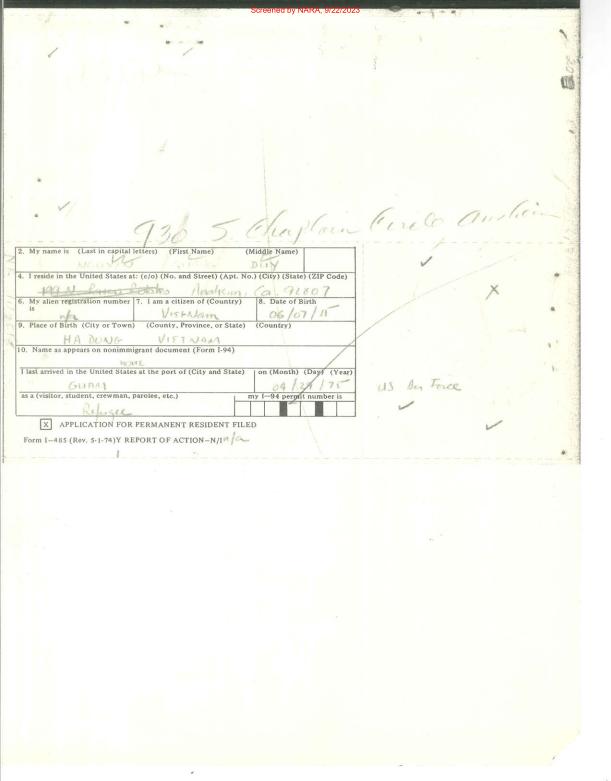 Screened by NARA, 9/22/2023
930 S. Chaplain Circle
2. My name is (Last in capital letters) (First Name) (Middle Name)
DUY
4. I reside in the United States at: (c/o) (No, and Street) (Apt. No.) (City) (State) (ZIP Code)
Anaheim, Ca. 92807
6. My alien registration number is 7. I am a citizen of (Country) 8. Date of Birth
n/a VIETNAM 06/07/15
9. Place of Birth (City or Town) (County, Province, or State) (Country)
HA DUNG VIETNAM
10. Name as appears on nonimmigrant document (Form I-94)
I last arrived in the United States at the port of (City and State) on (Month) (Day) (Year)
GUAM 04/29/75
US Air Force
as a (visitor, student, crewman, parolee, etc.) my I-94 permit number is
Refugee
X APPLICATION FOR PERMANENT RESIDENT FILED
Form I-485 (Rev. 5-1-74)Y REPORT OF ACTION-N/I n/a